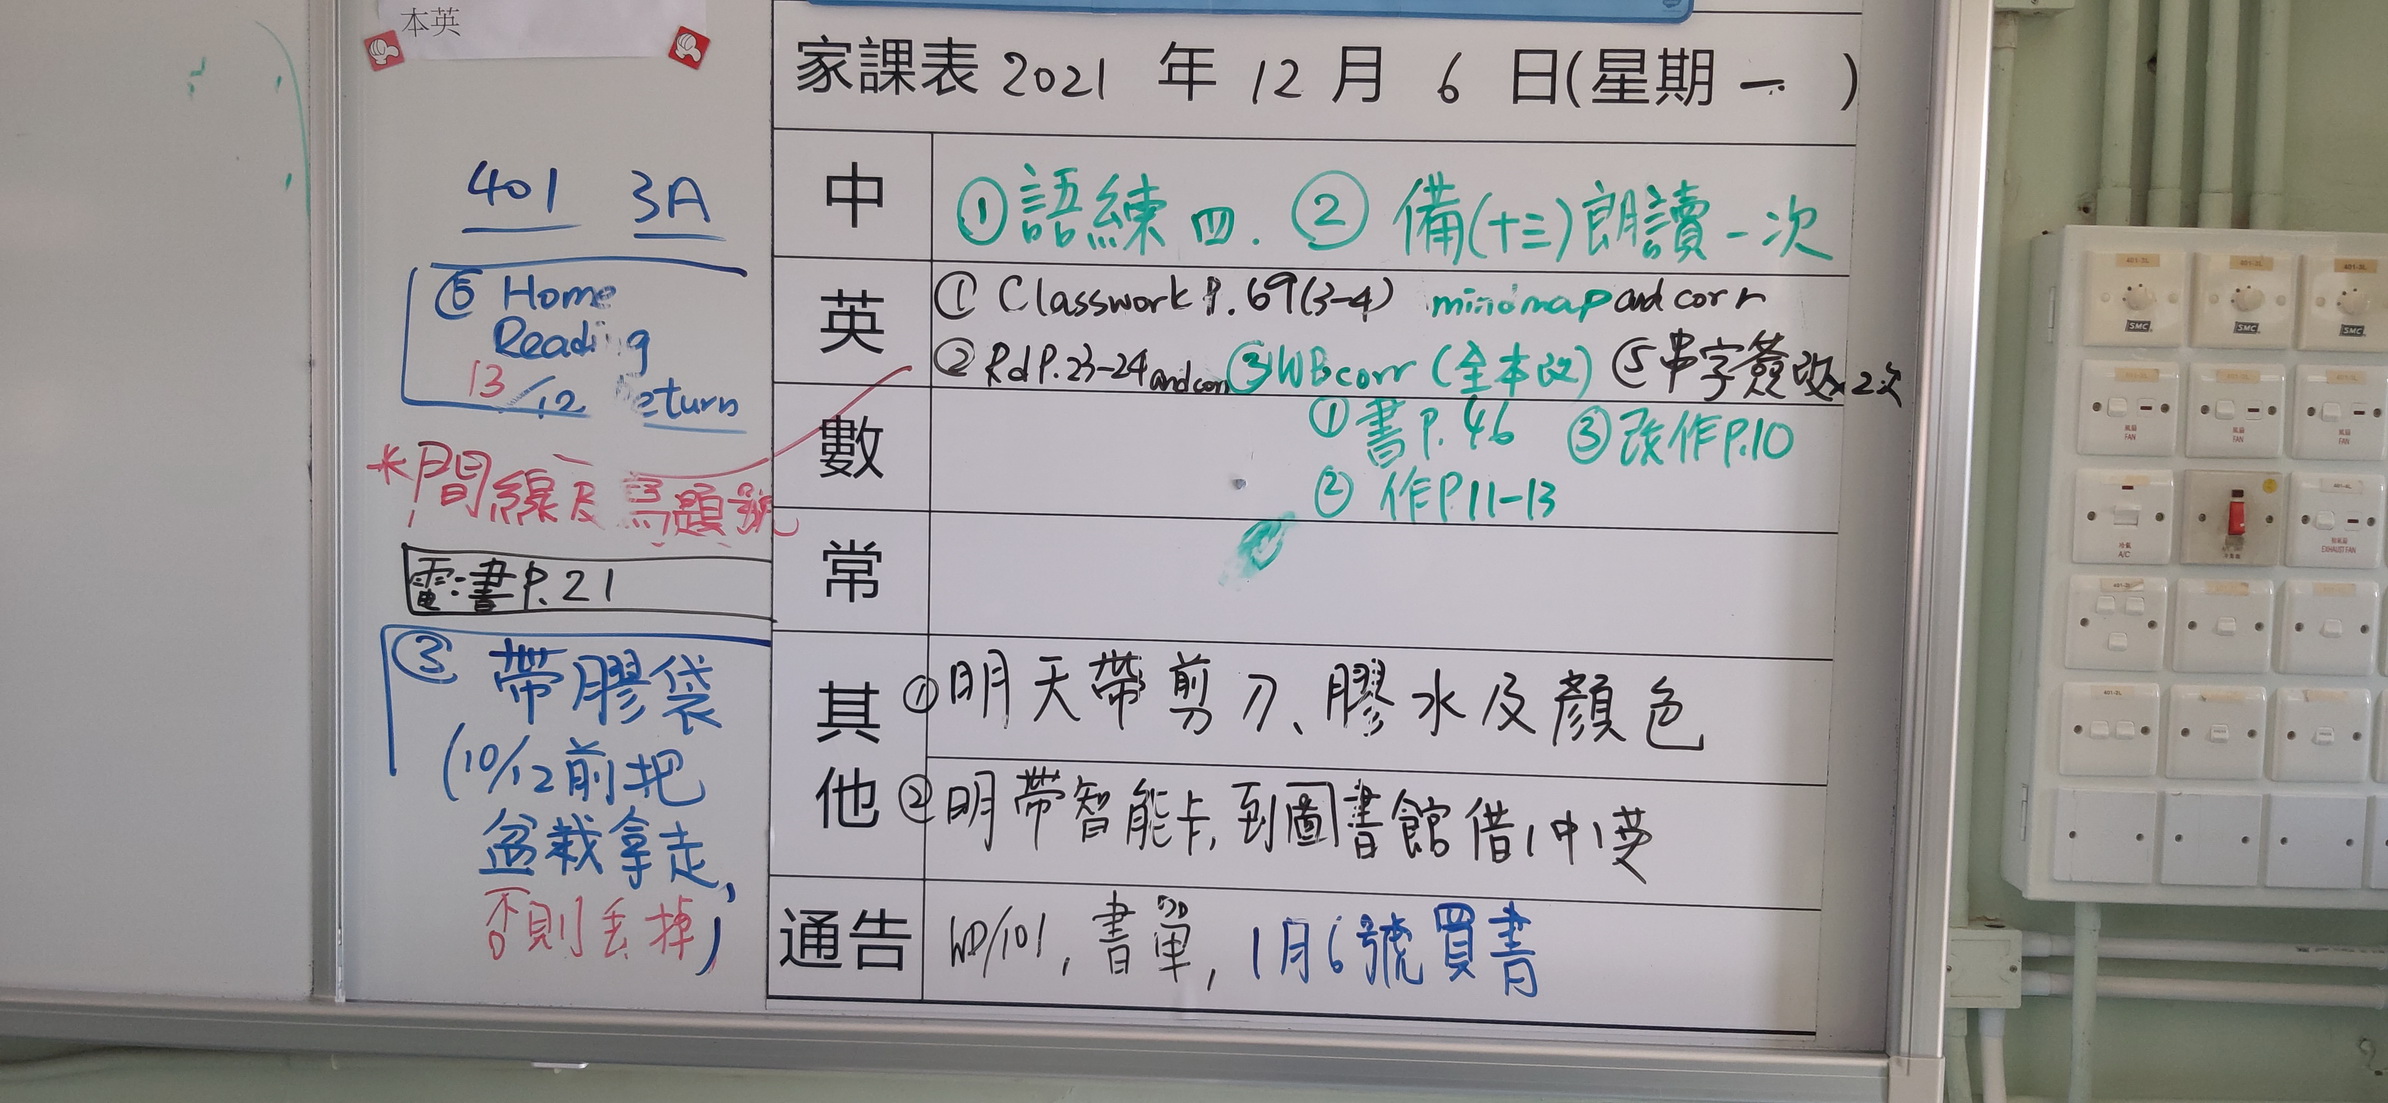 本英
401 3A
⑥ Home
Reading
13/12 return
*間線及寫題號
電:書P.21
③ 帶膠袋
(10/12前把
盆栽拿走,
否則丟掉)
家課表 2021 年 12 月 6 日(星期 一 )
中 ①語練四. ②備(十三)朗讀一次
英 ① Classwork P.69(3-4) mindmap and corr
② Rd P.23-24 and corr ③WB corr (全本改) ⑤串字簽改x2次
數 ①書P.46 ③改作P.10
②作P.11-13
常
其他 ①明天帶剪刀、膠水及顏色
②明帶智能卡,到圖書館借1中1英
通告 WD/101, 書單, 1月6號買書
401-2L 401-2L 401-3L
SMC SMC SMC
風扇 風扇 風扇
FAN FAN FAN
冷氣 抽氣扇
A/C EXHAUST FAN